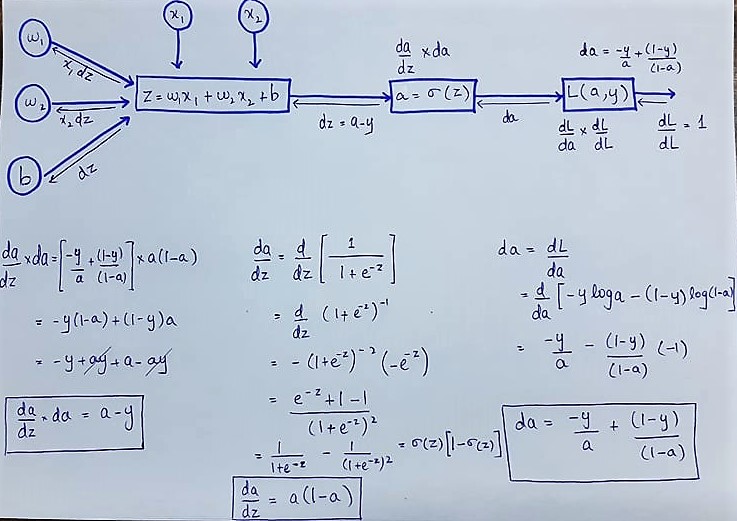 x₁ x₂
w₁
w₂
b
x₁dz
x₂dz
dz
z = w₁x₁ + w₂x₂ + b
dz = a-y
da/dz × da
a = σ(z)
da
da = -y/a + (1-y)/(1-a)
L(a,y)
dL/da × dL/dL
dL/dL = 1
da/dz × da = [-y/a + (1-y)/(1-a)] × a(1-a)
= -y(1-a) + (1-y)a
= -y + ay + a - ay
da/dz × da = a-y
da/dz = d/dz [1/(1+e^-z)]
= d/dz (1+e^-z)^-1
= -(1+e^-z)^-2 (-e^-z)
= (e^-z + 1 - 1)/(1+e^-z)^2
= 1/(1+e^-z) - 1/(1+e^-z)^2 = σ(z)[1-σ(z)]
da/dz = a(1-a)
da = dL/da
= d/da [-y log a - (1-y) log(1-a)]
= -y/a - (1-y)/(1-a) (-1)
da = -y/a + (1-y)/(1-a)